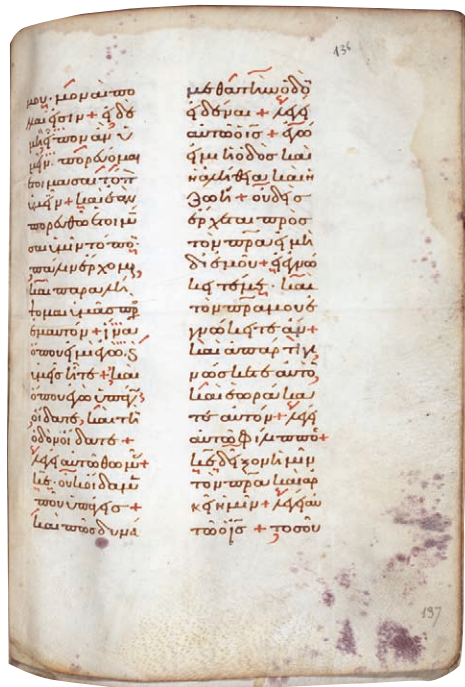 136
μου· μοναι πο
λλαι εἰσιν + εἰ δὲ
μὴ εἶπον ἂν ὑ
μῖν. πορεύομαι
ἑτοιμασαι τόπ
ὑμῖν + καὶ ἐαν
πορευθῶ ἑτοιμά
σαι ὑμῖν τοπο
πάλιν ἔρχομαι,
καὶ παραλή
ψομαι ὑμᾶς πρ
εμαυτόν + ἵνα
ὅπου εἰμὶ ἐγὼ. κ
ὑμεῖς ἦτε + καὶ
ὅπου ἐγὼ ὑπάγω
οἴδατε, καὶ τὴ
ὁδόν οἴδατε +
λέγει αὐτῶ θωμᾶς +
κε. οὐκ οἴδαμεν
ποῦ ὑπάγεις +
καὶ πῶς δυνά
μεθα τὴν ὁδὸ
εἰδέναι + λέγει
αὐτῶ ὁ ις + ἐγώ
εἰμι ἡ ὁδὸς καὶ
ἡ ἀλήθεια καὶ ἡ
ζωὴ + οὐδεὶς
ἔρχεται πρὸς
τὸν πρα εἰ μὴ
δι ἐμοῦ + εἰ ἐγνώ
κειτέ με· καὶ
τὸν πρα μου ἐ
γνώκειτε ἂν +
καὶ ἀπάρτι γι
νώσκετε αὐτὸ,
καὶ ἑωράκα
τε αὐτόν + λέγει
αὐτῶ φίλιππος +
κε δεῖξον ἡμῖν
τὸν πρα καὶ ἀρ
κεῖ ἡμῖν + λέγει αυ
τῶ ὁ ις + τοσοῦ
137